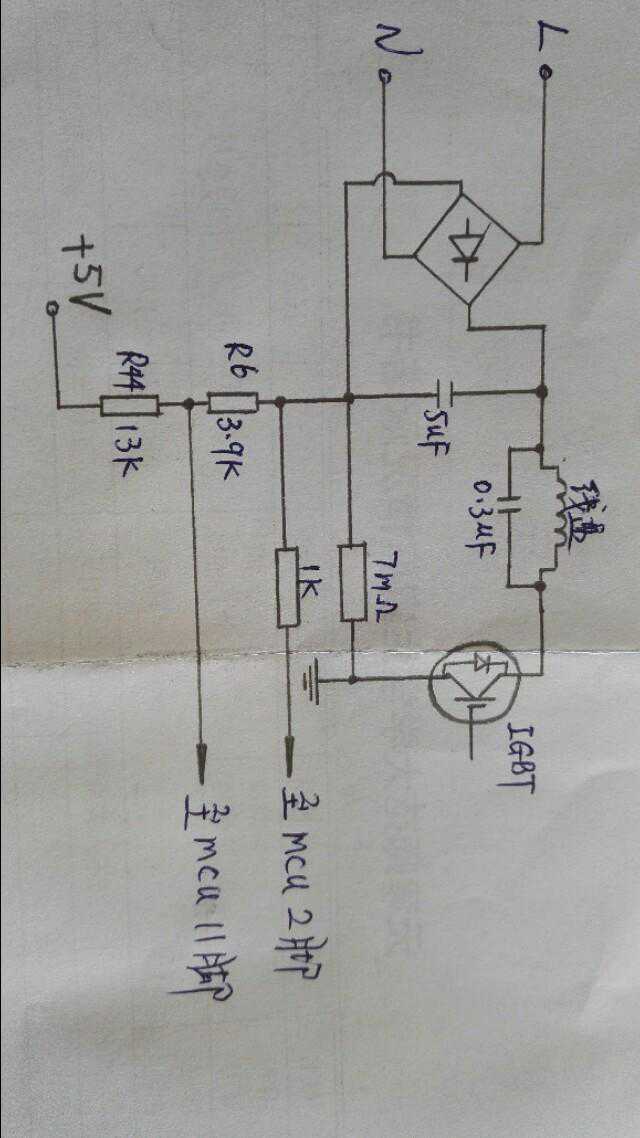 L
N
+5V
R44
13K
R6
3.9K
5uF
0.3uF
线盘
1K
7mΩ
IGBT
至mcu 2脚
至mcu 11脚